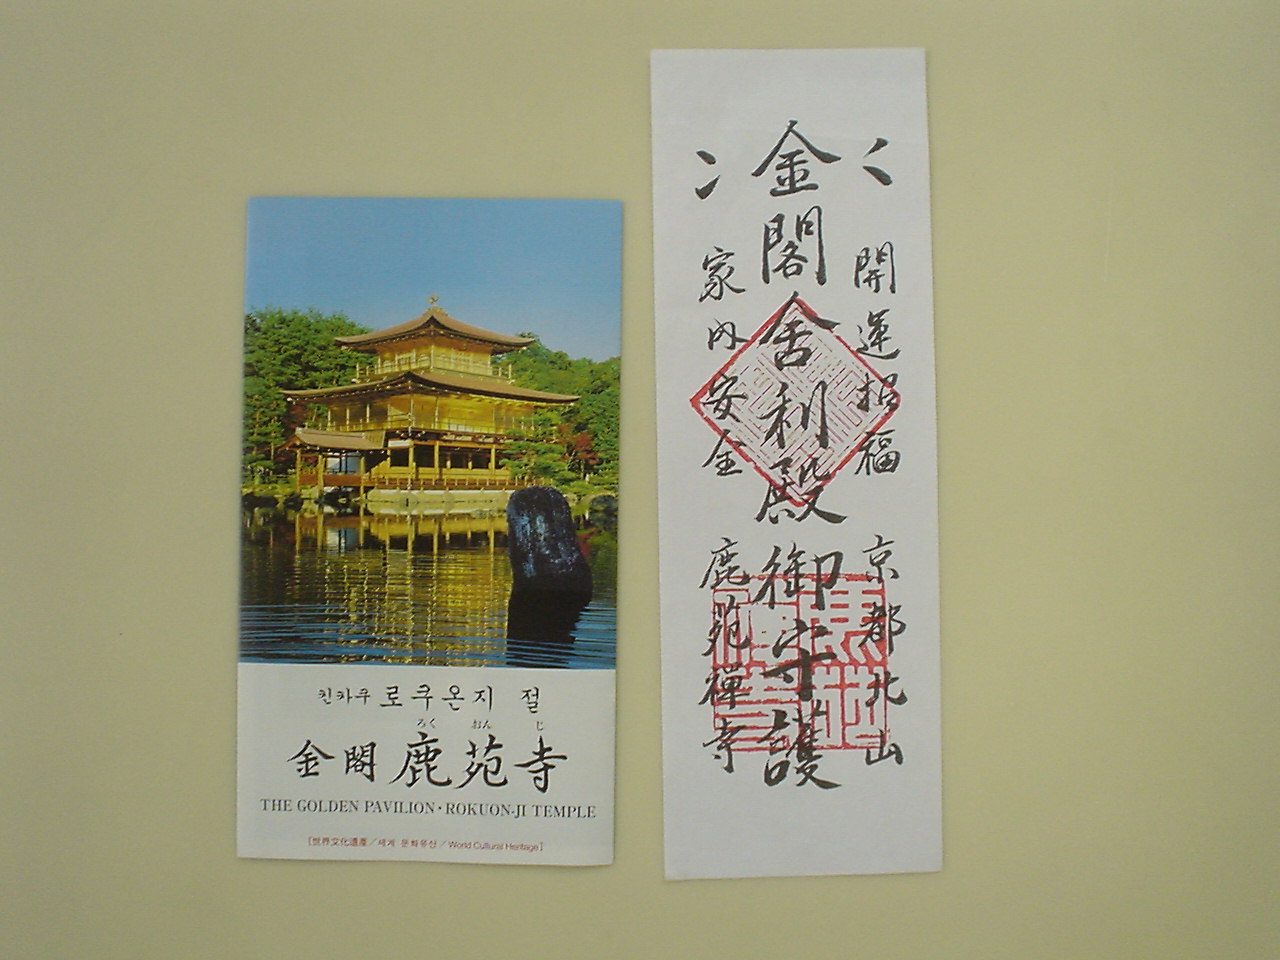 킨카쿠 로쿠온지 절
ろく おん じ
金閣 鹿苑寺
THE GOLDEN PAVILION・ROKUON-JI TEMPLE
[世界文化遺産/세계 문화유산/World Cultural Heritage]
開運招福 京都北山
金閣舎利殿御守護
家内安全 鹿苑禅寺